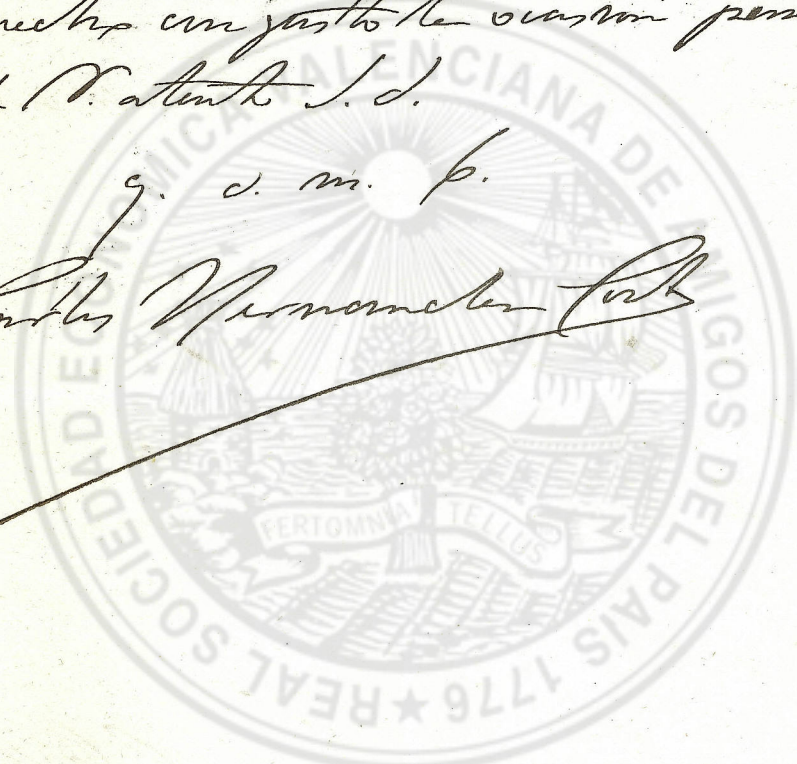 con gusto la ocasion
V. atento S. S.
q. s. m. b.
Hernandez
REAL SOCIEDAD ECONOMICA VALENCIANA DE AMIGOS DEL PAIS 1776 ★
FERT OMNIA TELLUS